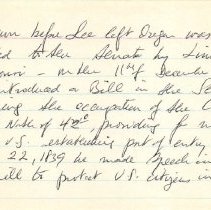 before Lee left Oregon was
to the Senate by Lin
on the 11th of December
introduced a Bill in the Se
the occupation of the C
North of 42°, providing for
U.S. establishing port of entry
22, 1839 he made speech in
ill to protect U.S. citizens in